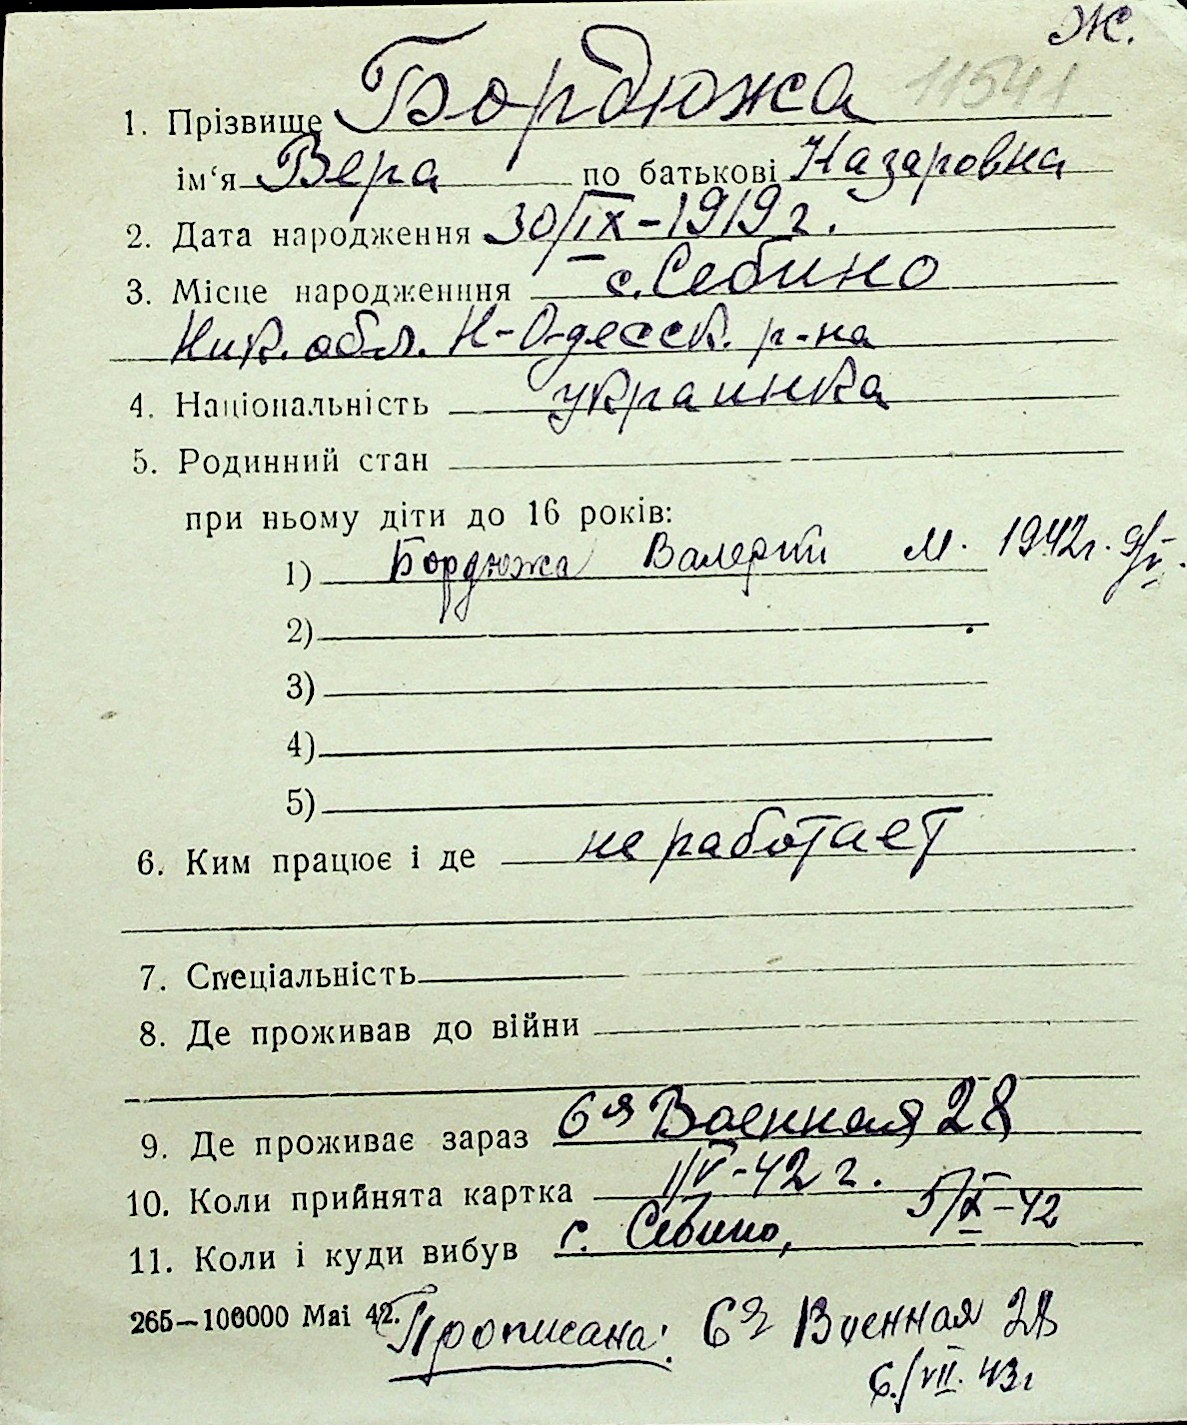 Ж.
11541
1. Прізвище Бордюжа
ім‘я Вера по батькові Назаровна
2. Дата народження 30/IX-1919 г.
3. Місце народженння с. Себино
Ник. обл. Н-Одесск. р-на
4. Національність украинка
5. Родинний стан
при ньому діти до 16 років:
1) Бордюжа Валерий М. 1942г. 9/V.
2)
3)
4)
5)
6. Ким працює і де не работает
7. Спеціальність
8. Де проживав до війни
9. Де проживає зараз 6ая Военная 28
10. Коли прийнята картка 1/V-42 г.
11. Коли і куди вибув с. Себино, 5/X-42
265—100000 Mai 42.
Прописана: 6я Военная 28
6/VII. 43г